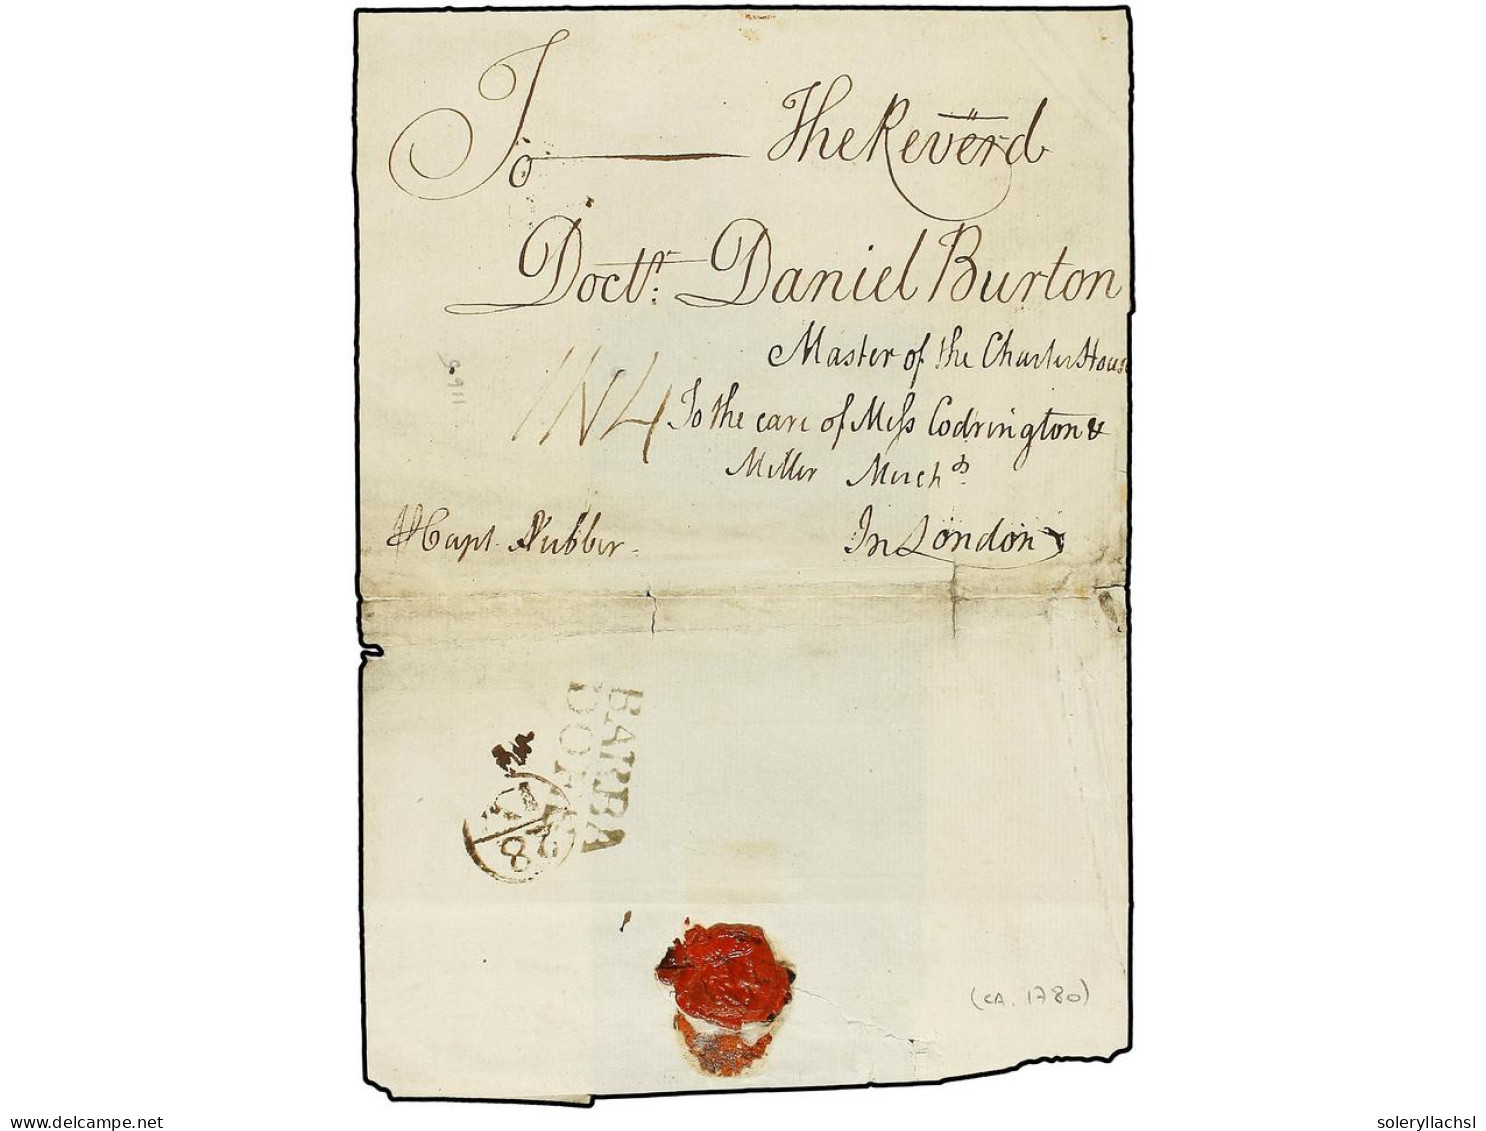 To The Reverd
Doctr. Daniel Burton
Master of the Charter House
To the care of Mess Codrington &
Miller Merchds.
IN4
Capt. Nubber
In London
BARBA
DOES
28
(CA. 1780)
delcampe.net
soleryllachsl